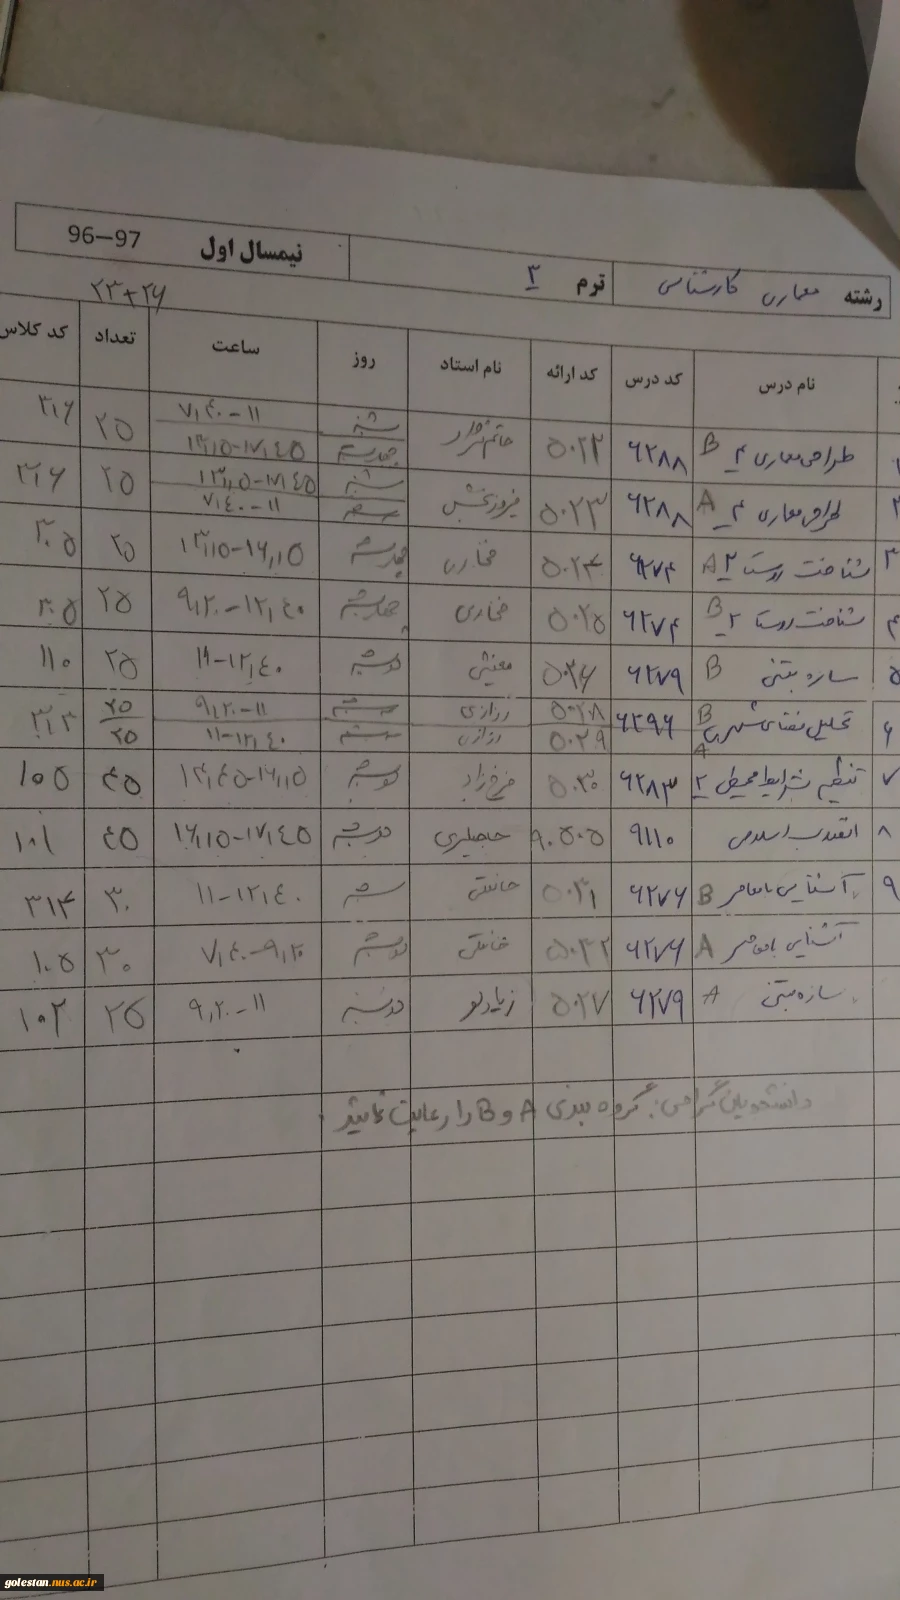 نیمسال اول 96-97
رشته معماری کارشناسی ترم ۳
۲۳+۲۶
نام درس کد درس کد ارائه نام استاد روز ساعت تعداد کد کلاس
۱ طراحی معماری ۴ B ۶۲۸۸ ۵۰۲۲ شنبه ۷,۴۰-۱۱ ۲۵ ۳۱۶
چهارشنبه ۱۳,۱۵-۱۷,۴۵
۲ طراحی معماری ۴ A ۶۲۸۸ ۵۰۲۳ فیروزبخش شنبه ۱۳,۱۵-۱۷,۴۵ ۲۵ ۳۱۶
۷,۴۰-۱۱
۳ شناخت روستا ۲ A ۶۲۷۴ ۵۰۲۴ فخاری چهارشنبه ۱۳,۱۵-۱۶,۱۵ ۲۵ ۳۰۵
۴ شناخت روستا ۲ B ۶۲۷۴ ۵۰۲۵ فخاری چهارشنبه ۹,۲۰-۱۲,۴۰ ۲۵ ۳۰۵
۵ سازه بتنی B ۶۲۷۹ ۵۰۲۶ دوشنبه ۱۱-۱۲,۴۰ ۲۵ ۱۱۰
۶ تحلیل فضای شهری B ۶۲۹۶ ۵۰۲۸ رزازی ۹,۲۰-۱۱ ۲۵ ۳۱۳
A ۵۰۲۹ رزازی ۱۱-۱۲,۴۰ ۲۵
۷ تنظیم شرایط محیطی ۲ ۶۲۸۳ ۵۰۳۰ فرخ‌زاد دوشنبه ۱۴,۴۵-۱۶,۱۵ ۴۵ ۱۰۵
۸ انقلاب اسلامی ۹۱۱۰ ۹۰۵۰۵ دوشنبه ۱۶,۱۵-۱۷,۴۵ ۴۵ ۱۰۱
۹ آشنایی با معاصر B ۶۲۷۶ ۵۰۳۱ شنبه ۱۱-۱۲,۴۰ ۳۰ ۳۱۴
آشنایی با معاصر A ۶۲۷۶ ۵۰۳۲ دوشنبه ۷,۴۰-۹,۲۰ ۳۰ ۱۰۵
سازه بتنی A ۶۲۷۹ ۵۰۲۷ زیادلو دوشنبه ۹,۲۰-۱۱ ۲۵ ۱۰۲
دانشجویان گرامی: گروه بندی A و B را رعایت نمائید.
golestan.nus.ac.ir